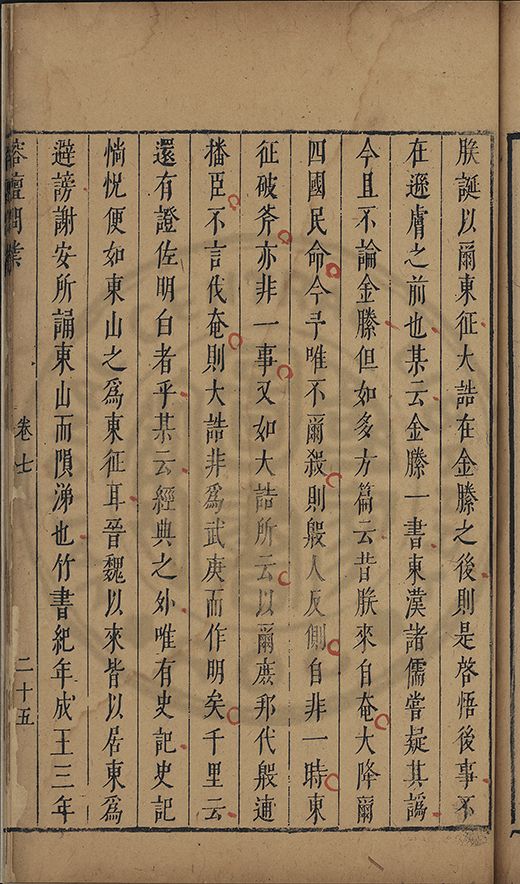 朕誕以爾東征大誥在金縢之後則是啓悟後事不
在遜膚之前也某云金縢一書東漢諸儒嘗疑其譌
今且不論金縢但如多方篇云昔朕來自奄大降爾
四國民命今予唯不爾殺則殷人反側自非一時東
征破斧亦非一事又如大誥所云以爾庶邦代殷逋
播臣不言伐奄則大誥非爲武庚而作明矣千里云
還有證佐明白者乎某云經典之外唯有史記史記
惝恍便如東山之爲東征耳晉魏以來皆以居東爲
避謗謝安所誦東山而隕涕也竹書紀年成王三年
榕壇問業
卷七
二十五